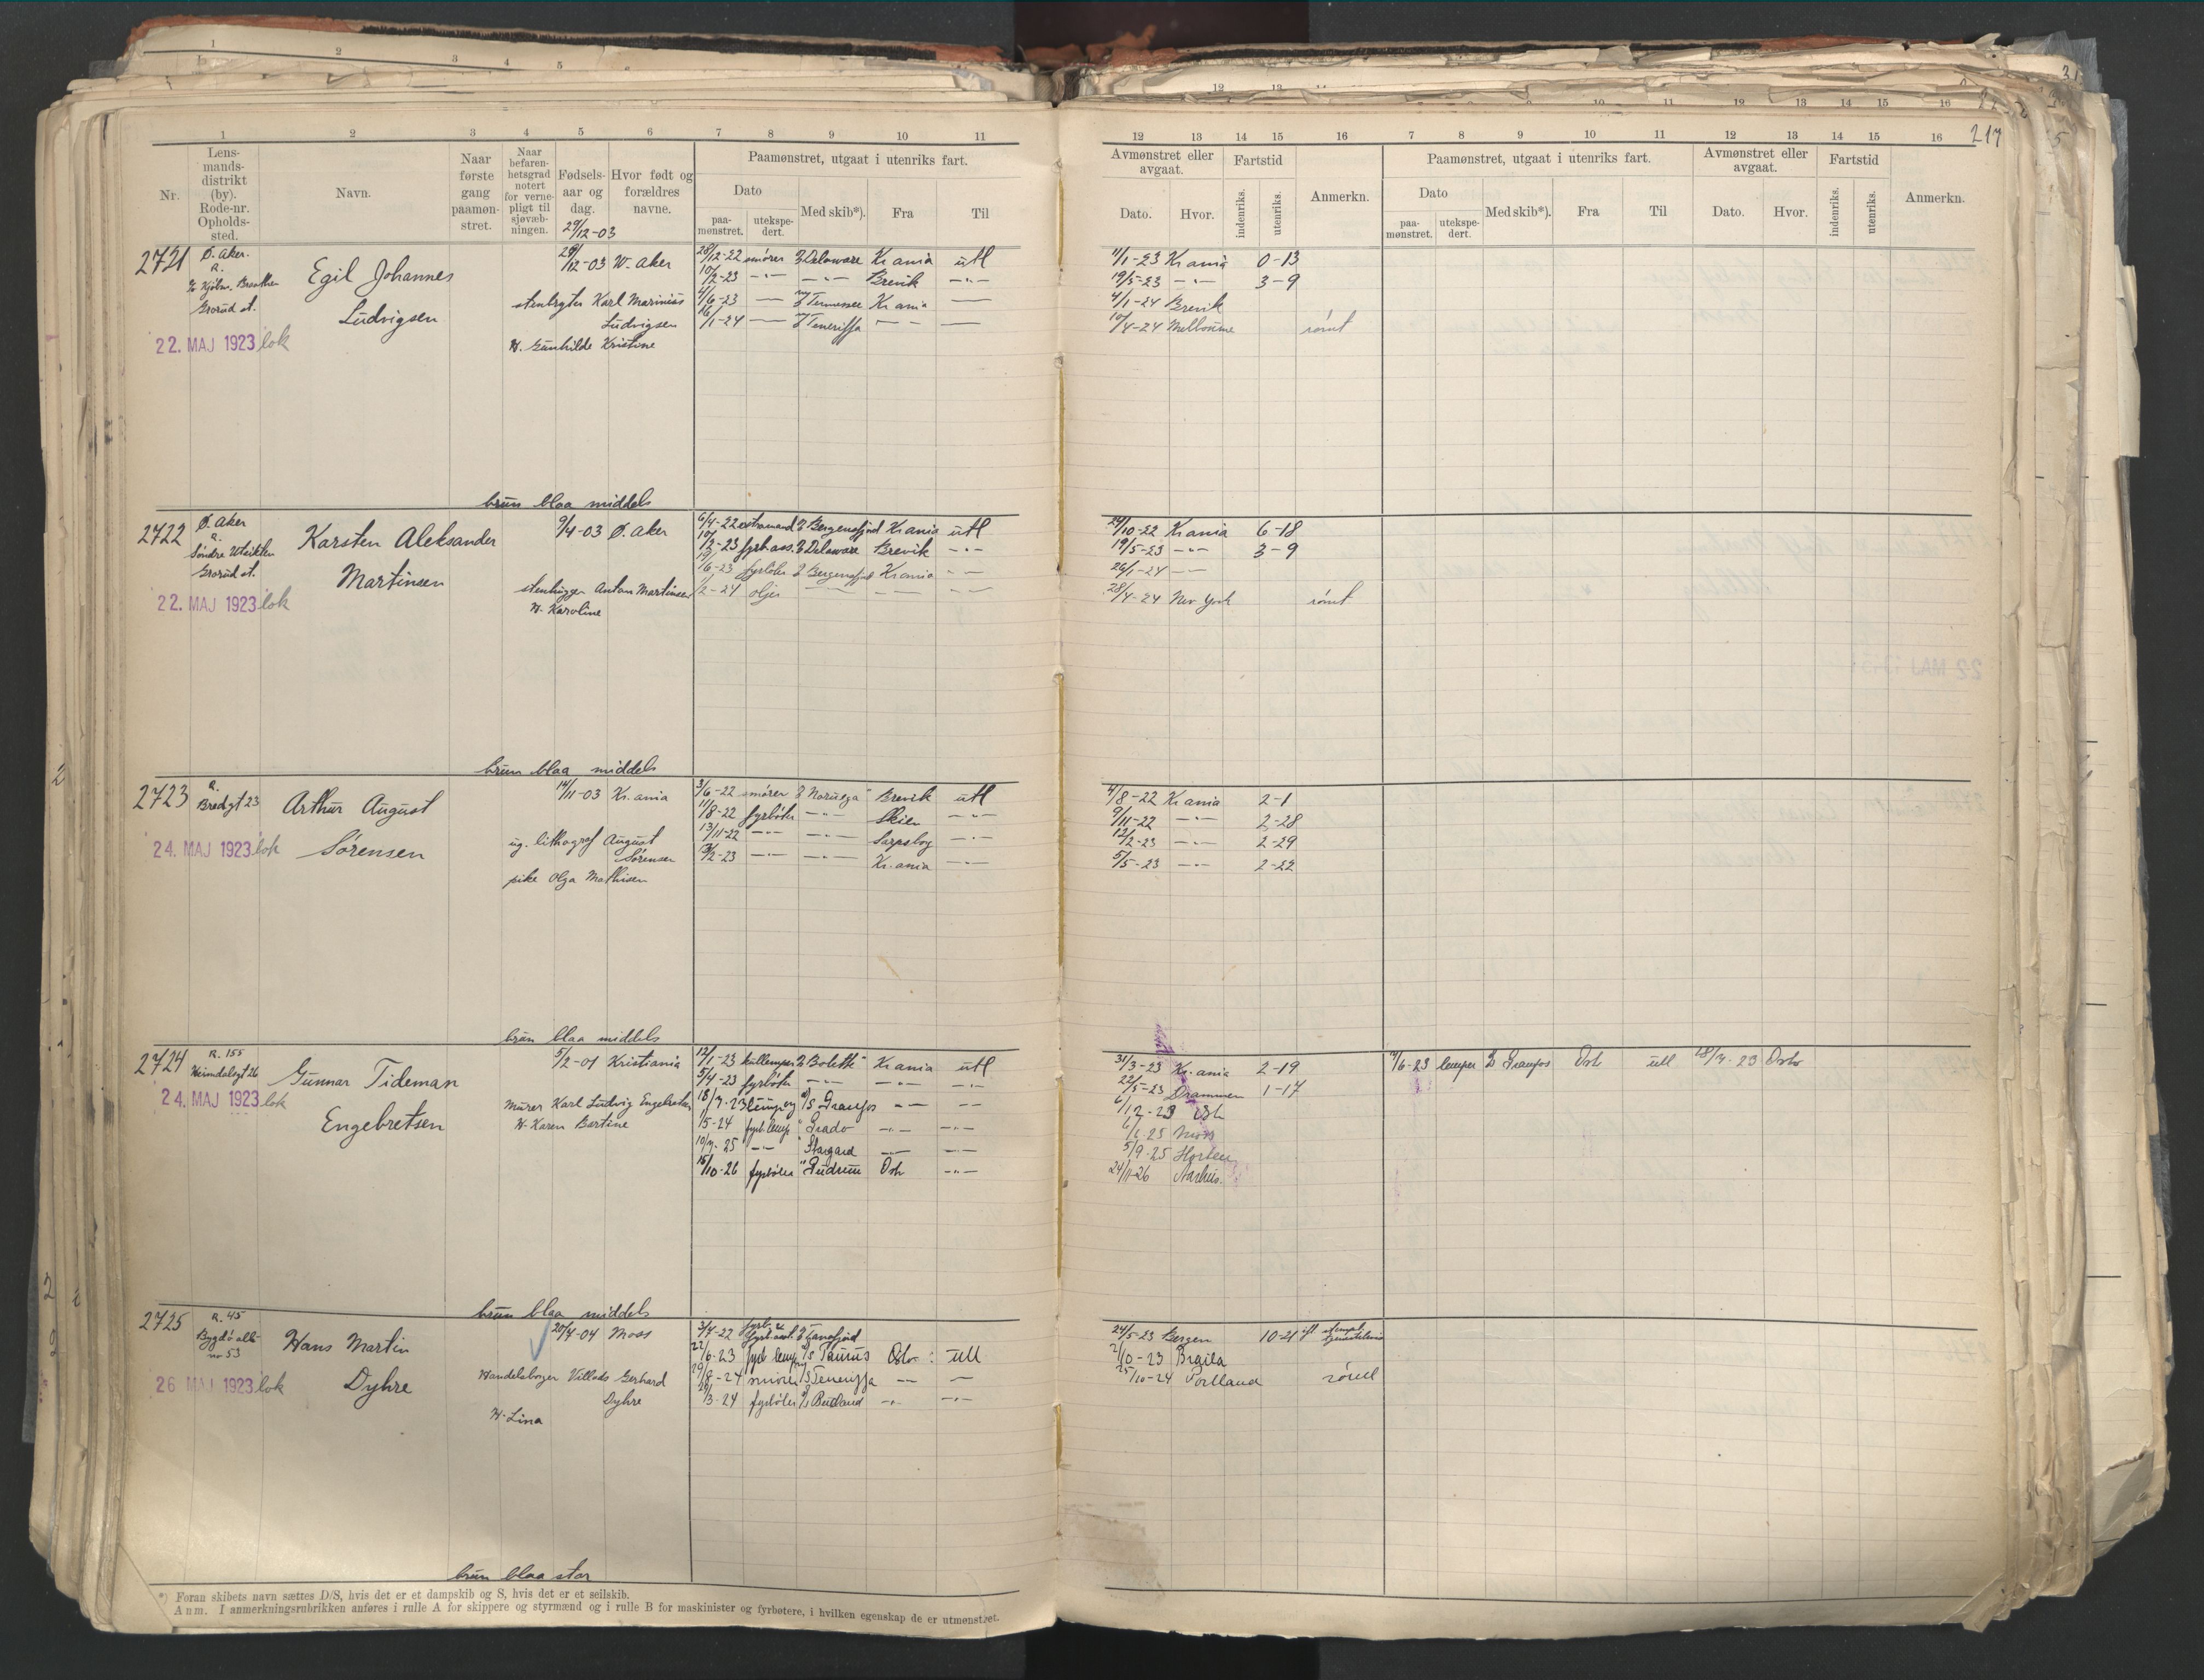 217
1 2 3 4 5 6 7 8 9 10 11
Nr.
Lens-
mands-
distrikt
(by).
Rode-nr.
Opholds-
sted.
Navn.
Naar
første
gang
paamøn-
stret.
Naar
befaren-
hetsgrad
notert
for verne-
pligt til
sjøvæb-
ningen.
Fødsels-
aar og
dag.
29/12-03
Hvor født og
forældres
navne.
Paamønstret, utgaat i utenriks fart.
Dato
paa-
mønstret.
utekspe-
dert.
Med skib*).
Fra
Til
12 13 14 15 16 7 8 9 10 11 12 13 14 15 16
Avmønstret eller
avgaat.
Dato.
Hvor.
Fartstid
indenriks.
utenriks.
Anmerkn.
Paamønstret, utgaat i utenriks fart.
Dato
paa-
mønstret.
utekspe-
dert.
Med skib*).
Fra
Til
Avmønstret eller
avgaat.
Dato.
Hvor.
Fartstid
indenriks.
utenriks.
Anmerkn.
2721
Ø. Aker.
R.
Grorud st.
22. MAJ 1923 lok
Egil Johannes
Ludvigsen
29/12-03 W. Aker
Karl Marinius
Ludvigsen
H. Gunhilde Kristine
28/12-22 smører D Delaware Kr.ania utl
10/2-23 -"- -"- Brevik -"-
4/6-23 — Tennessee Kr.ania —
16/1-24 — Teneriffa — —
11/1-23 Kr.ania 0-13
19/5-23 -"- 3-9
4/1-24 Brevik
10/4-24 Melbourne rømt
brun blaa middels
2722
Ø. Aker
R.
Søndre Utsikten
Grorud st.
22. MAJ 1923 lok
Karsten Aleksander
Martinsen
9/4-03 Ø. Aker
stenhugger Anton Martinsen
H. Karoline
6/4-22 extramand D Bergensfjord Kr.ania utl
10/2-23 fyrb.ass. D Delaware Brevik -"-
19/6-23 fyrbøter D Bergensfjord Kr.ania —
1/2-24 oljer — — —
24/10-22 Kr.ania 6-18
19/5-23 -"- 3-9
26/1-24 -"-
28/4-24 New York rømt
brun blaa middels
2723
R.
Bredgt 23
24. MAJ 1923 lok
Arthur August
Sørensen
14/11-03 Kr.ania
ug. lithograf August
Sørensen
pike Olga Mathisen
3/6-22 smører D Noruega" Brevik utl
11/8-22 fyrbøter -"- Skien -"-
13/11-22 -"- -"- Sarpsborg -"-
13/2-23 -"- -"- Kr.ania -"-
4/8-22 Kr.ania 2-1
9/11-22 -"- 2-28
12/2-23 -"- 2-29
5/5-23 -"- 2-22
brun blaa middels
2724
R. 155
Heimdalsgt 26
24. MAJ 1923 lok
Gunnar Tideman
Engebretsen
5/2-01 Kristiania
Murer Karl Ludvig Engebretsen
H. Karen Bertine
12/1-23 kullemper D Bolette" Kr.ania utl
5/4-23 fyrbøter -"- -"- -"-
18/7-23 D/S Granfos — —
15-24 fyrb.lemp " Prado -"- -"-
10/7-25 -"- " Stargard -"- -"-
15/10-26 fyrbøter " Gudrun Oslo -"-
31/3-23 Kr.ania 2-19
22/5-23 Drammen 1-17
6/12-23 Oslo
6/1-25 Moss
5/9-25 Horten
24/11-26 Aarhus.
6-23 lemper D Granfos Oslo utl 18/7-23 Oslo
brun blaa middels
2725
R. 45
Bygdø allé
no 53
26 MAJ 1923 lok
Hans Martin
Dyhre
20/4-04 Moss
Handelsborger Villads Gerhard
Dyhre
H. Lina
3/7-22 D Tanafjord
22/6-23 fyrb lemper D/S Taurus Oslo : utl
24 smører Teneriffa — —
3-24 fyrbøter -"- -"-
24/5-23 Bergen 10-21
2/10-23 Braila
25/10-24 Portland rømt
brun blaa stor
*) Foran skibets navn sættes D/S, hvis det er et dampskib og S, hvis det er et seilskib.
Anm. I anmerkningsrubrikken anføres i rulle A for skippere og styrmænd og i rulle B for maskinister og fyrbøtere, i hvilken egenskap de er utmønstret.